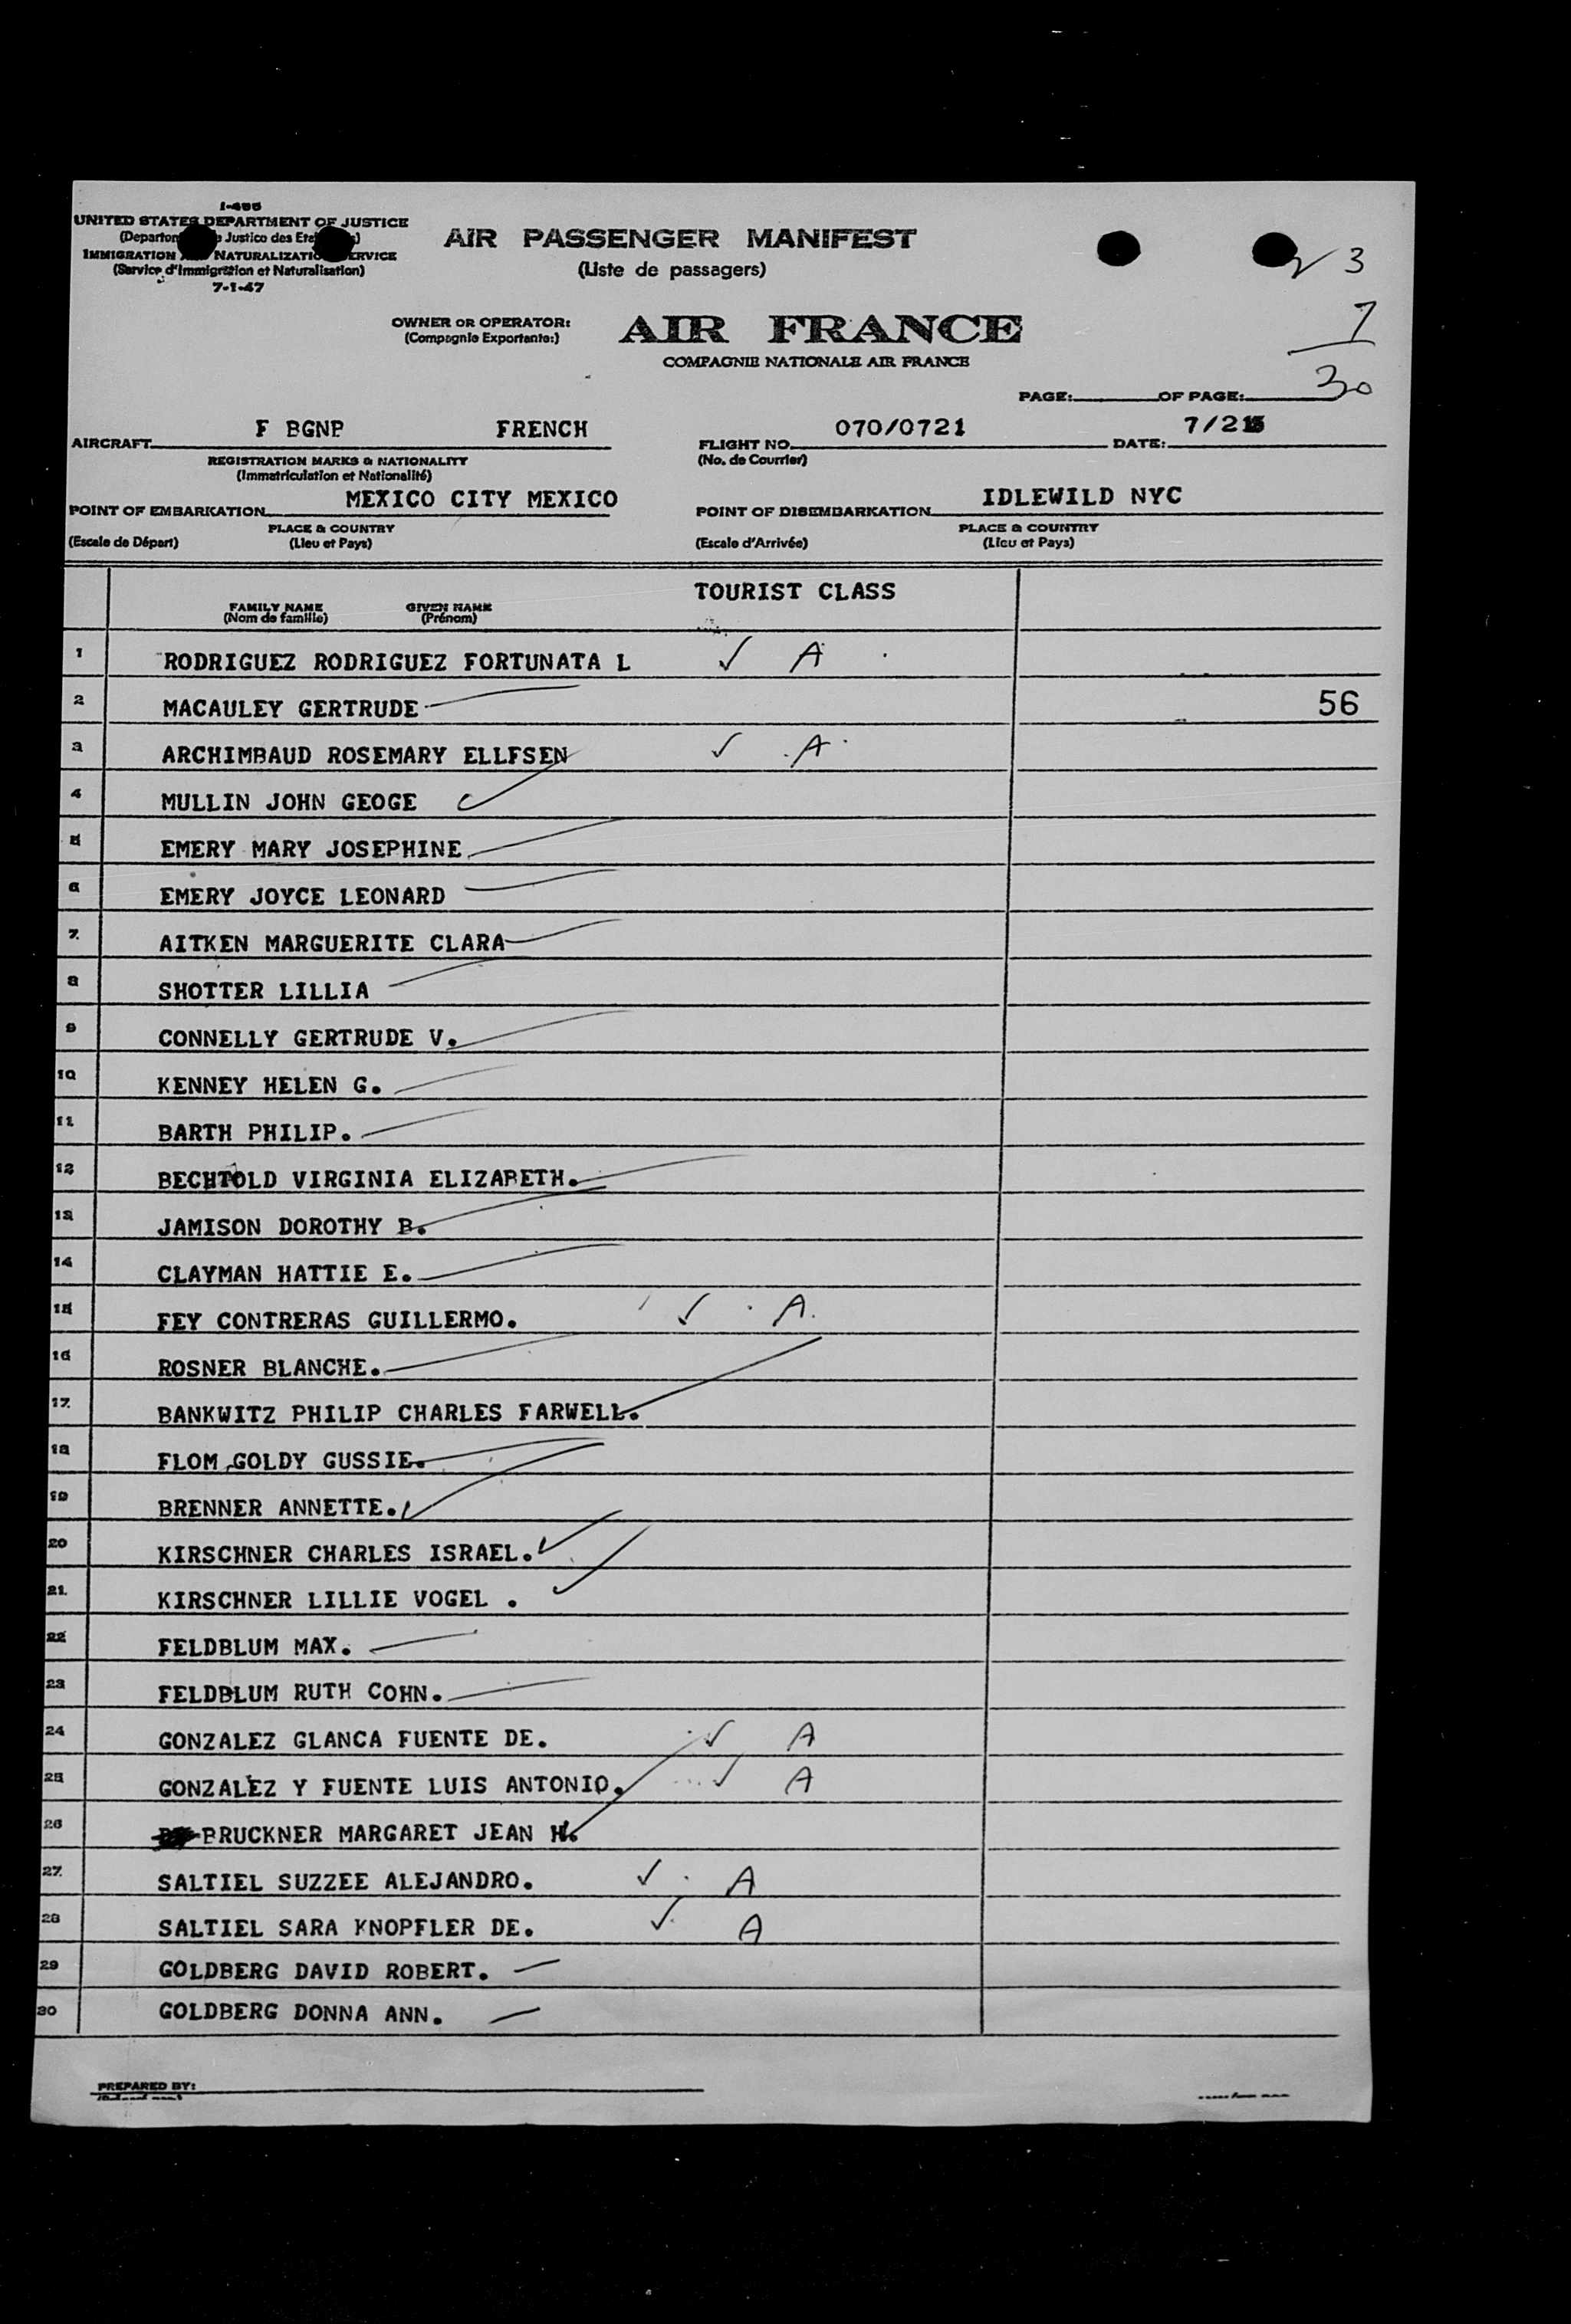 I-466
UNITED STATES DEPARTMENT OF JUSTICE
(Departon Justice des Eta )
IMMIGRATION NATURALIZATION SERVICE
(Service d'Immigration et Naturalisation)
7-1-47
AIR PASSENGER MANIFEST
(Liste de passagers)
3
7
30
OWNER OR OPERATOR: AIR FRANCE
(Compagnie Exportante:)
COMPAGNIE NATIONALE AIR FRANCE
PAGE: OF PAGE:
AIRCRAFT F BGNP FRENCH FLIGHT NO. 070/0721 DATE: 7/21
REGISTRATION MARKS & NATIONALITY (No. de Courrier)
(Immatriculation et Nationalité)
POINT OF EMBARKATION MEXICO CITY MEXICO POINT OF DISEMBARKATION IDLEWILD NYC
PLACE & COUNTRY PLACE & COUNTRY
(Escale de Départ) (Lieu et Pays) (Escale d'Arrivée) (Lieu et Pays)
TOURIST CLASS
FAMILY NAME GIVEN NAME
(Nom de famille) (Prénom)
1 RODRIGUEZ RODRIGUEZ FORTUNATA L ✓ A
2 MACAULEY GERTRUDE 56
3 ARCHIMBAUD ROSEMARY ELLFSEN ✓ A
4 MULLIN JOHN GEOGE
5 EMERY MARY JOSEPHINE
6 EMERY JOYCE LEONARD
7 AITKEN MARGUERITE CLARA
8 SHOTTER LILLIA
9 CONNELLY GERTRUDE V.
10 KENNEY HELEN G.
11 BARTH PHILIP.
12 BECHTOLD VIRGINIA ELIZABETH.
13 JAMISON DOROTHY B.
14 CLAYMAN HATTIE E.
15 FEY CONTRERAS GUILLERMO. ✓ A
16 ROSNER BLANCHE.
17 BANKWITZ PHILIP CHARLES FARWELL.
18 FLOM GOLDY GUSSIE.
19 BRENNER ANNETTE.
20 KIRSCHNER CHARLES ISRAEL.
21 KIRSCHNER LILLIE VOGEL .
22 FELDBLUM MAX.
23 FELDBLUM RUTH COHN.
24 GONZALEZ GLANCA FUENTE DE. ✓ A
25 GONZALEZ Y FUENTE LUIS ANTONIO. ✓ A
26 BRUCKNER MARGARET JEAN H.
27 SALTIEL SUZZEE ALEJANDRO. ✓ A
28 SALTIEL SARA KNOPFLER DE. ✓ A
29 GOLDBERG DAVID ROBERT.
30 GOLDBERG DONNA ANN.
PREPARED BY: